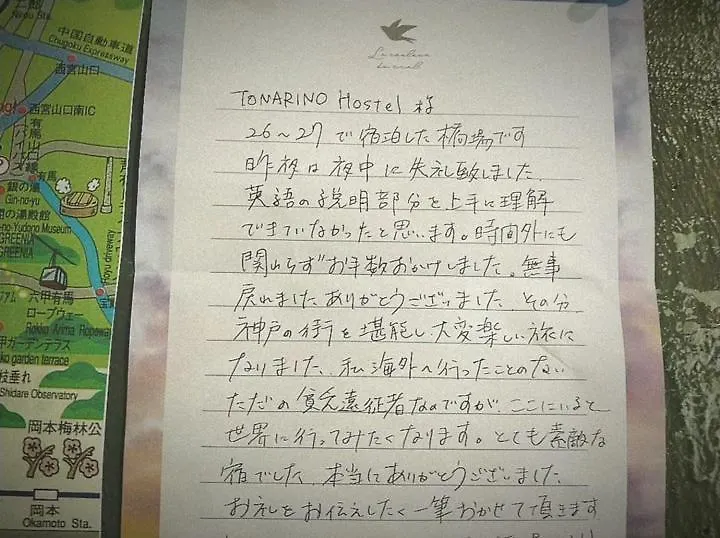 二郎
Nirou Sta.
中国自動車道
Chugoku Expressway
西宮山口
西宮山口南IC
有馬
銀の湯
Gin-no-yu
の湯殿館
-no-Yudono Museum
GREENIA
GREENIA
六甲有馬
ロープウェー
Rokko Arima Ropeway
ガーデンテラス
ko garden terrace
枝垂れ
Shidare Observatory
岡本梅林公
岡本
Okamoto Sta.
TONARINO Hostel 様
26〜27で宿泊した橋場です
昨夜は夜中に失礼致しました。
英語の説明部分を上手に理解
できていなかったと思います。時間外にも
関わらずお手数おかけしました。無事
戻れました ありがとうございました。その分、
神戸の街を堪能し大変楽しい旅に
なりました。私 海外へ行ったことのない
ただの貧乏遠征者なのですが、ここにいると
世界に行ってみたくなります。とても素敵な
宿でした。本当にありがとうございました
お礼をお伝えしたく一筆おかせて頂きます